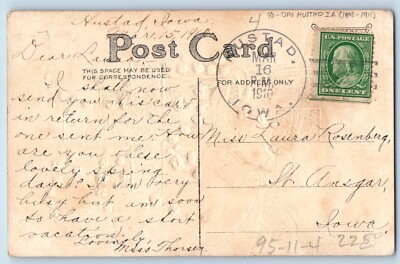 4
½-DPO HUSTAD IA (1895-1911)
Hustad, Iowa.
Mar. 15, 19
Dear Laura
Post Card
THIS SPACE MAY BE
USED FOR CORRESPONDENCE
FOR ADDRESS ONLY
HUSTAD,
MAR
16
1910
IOWA.
U.S. POSTAGE
ONE CENT
I shall now
send you this card
in return for the
one sent me. How
are you these
lovely spring
days? I am very
busy but am soon
to have a short
vacation.
Lovingly
Miss Thorsen
Miss Laura Rosenberg,
St. Ansgar,
Iowa.
95-11-4 2250